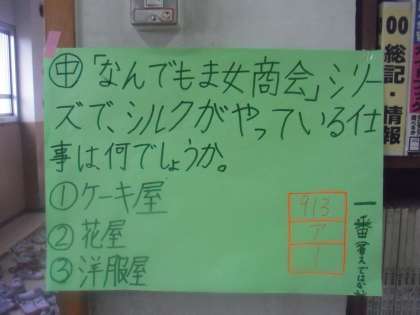 ㊥「なんでもま女商会」シリー
ズで、シルクがやっている仕
事は何でしょうか。
①ケーキ屋
②花屋
③洋服屋
913
ア
1
一番
00 総記・情報